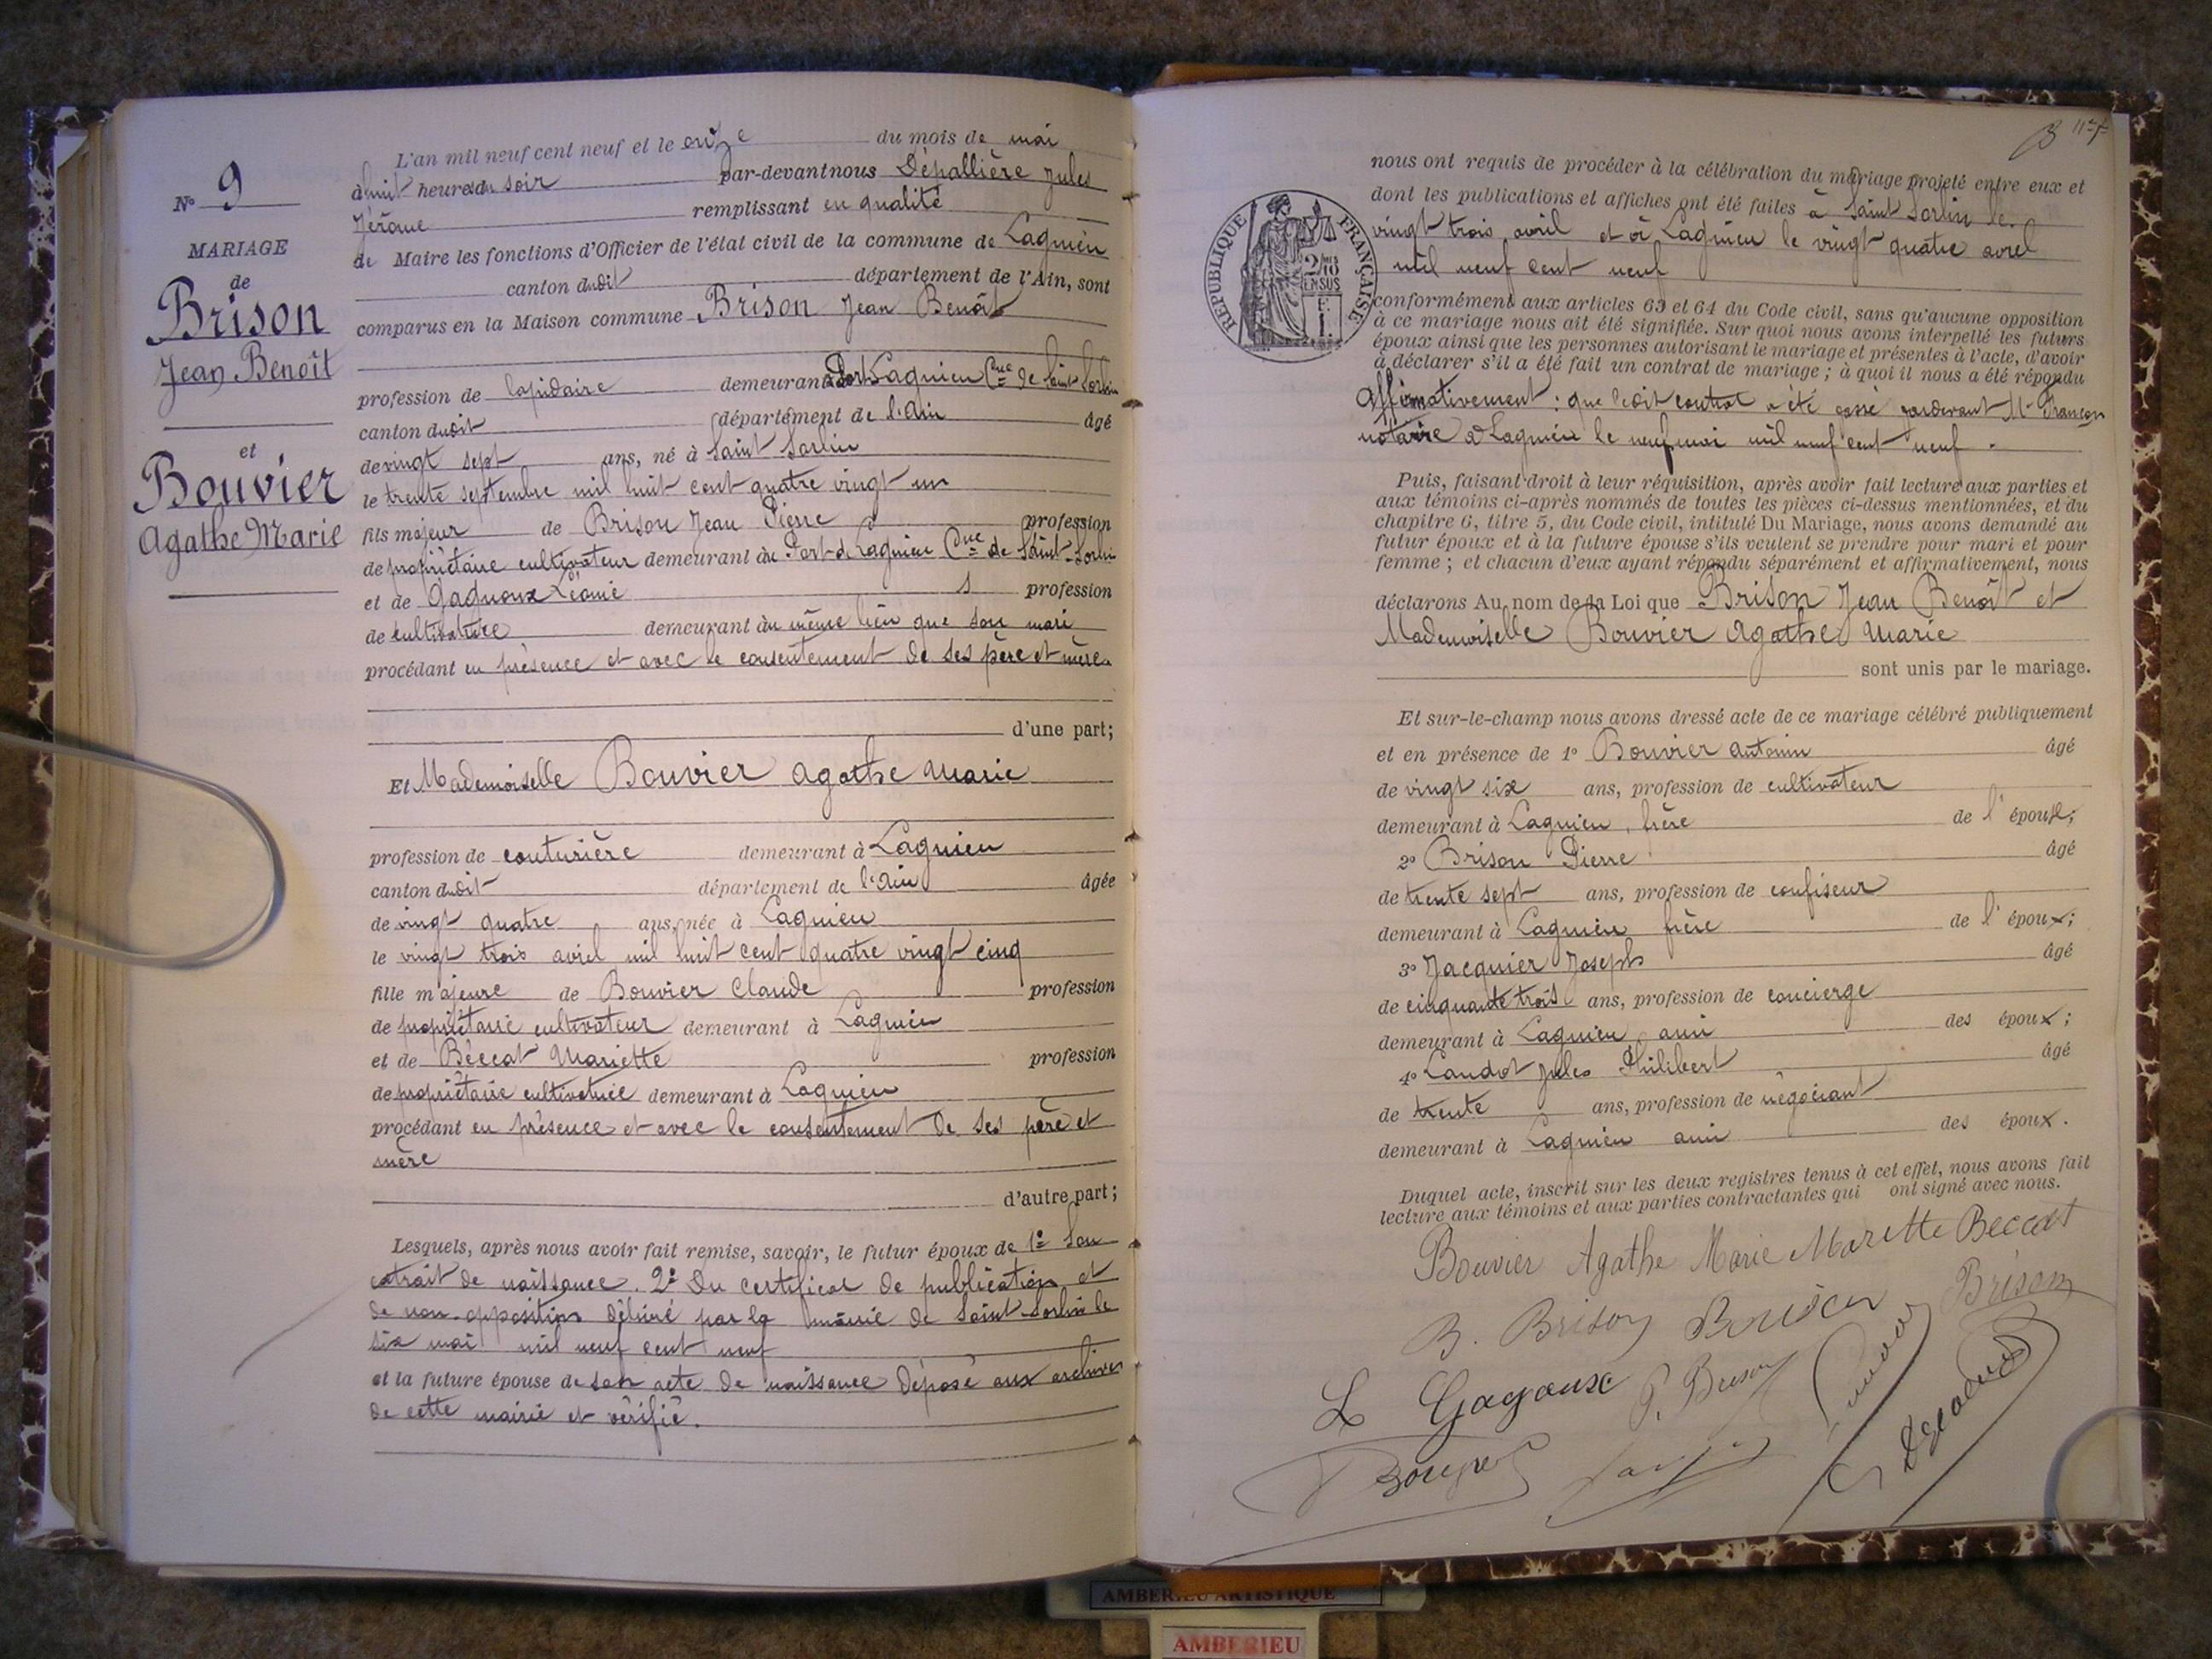 N° 9
MARIAGE
de
Brison
Jean Benoît
et
Bouvier
Agathe Marie
L'an mil neuf cent neuf et le onze du mois de mai
à huit heures du soir par-devant nous Dépallière Jules
Jérôme remplissant en qualité
de Maire les fonctions d'Officier de l'état civil de la commune de Lagnieu
canton dudit département de l'Ain, sont
comparus en la Maison commune Brison Jean Benoît
profession de lapidaire demeurant à Port Lagnieu Cne de Saint Sorlin
canton dudit département de l'Ain âgé
de vingt sept ans, né à Saint Sorlin
le trente septembre mil huit cent quatre vingt un
fils majeur de Brison Jean Pierre profession
de propriétaire cultivateur demeurant au Port de Lagnieu Cne de Saint-Sorlin
et de Gagnoux Léonie profession
de cultivatrice demeurant au même lieu que son mari
procédant en présence et avec le consentement de ses père et mère.
d'une part;
Et Mademoiselle Bouvier Agathe Marie
profession de couturière demeurant à Lagnieu
canton dudit département de l'Ain âgée
de vingt quatre ans, née à Lagnieu
le vingt trois avril mil huit cent quatre vingt cinq
fille majeure de Bouvier Claude profession
de propriétaire cultivateur demeurant à Lagnieu
et de Béccat Mariette profession
de propriétaire cultivatrice demeurant à Lagnieu
procédant en présence et avec le consentement de ses père et
mère
d'autre part;
Lesquels, après nous avoir fait remise, savoir, le futur époux de 1° Son
extrait de naissance. 2° Du certificat de publication et
de non-opposition délivré par la mairie de Saint-Sorlin le
six mai mil neuf cent neuf
et la future épouse de son acte de naissance déposé aux archives
de cette mairie et vérifié.
nous ont requis de procéder à la célébration du mariage projeté entre eux et
dont les publications et affiches ont été faites à Saint Sorlin le
vingt trois avril et à Lagnieu le vingt quatre avril
mil neuf cent neuf
RÉPUBLIQUE FRANÇAISE
2/10
EN SUS
conformément aux articles 63 et 64 du Code civil, sans qu'aucune opposition
à ce mariage nous ait été signifiée. Sur quoi nous avons interpellé les futurs
époux ainsi que les personnes autorisant le mariage et présentes à l'acte, d'avoir
à déclarer s'il a été fait un contrat de mariage ; à quoi il nous a été répondu
Affirmativement : que ledit contrat a été passé pardevant Me Françon
notaire à Lagnieu le neuf mai mil neuf cent neuf.
Puis, faisant droit à leur réquisition, après avoir fait lecture aux parties et
aux témoins ci-après nommés de toutes les pièces ci-dessus mentionnées, et du
chapitre 6, titre 5, du Code civil, intitulé Du Mariage, nous avons demandé au
futur époux et à la future épouse s'ils veulent se prendre pour mari et pour
femme ; et chacun d'eux ayant répondu séparément et affirmativement, nous
déclarons Au nom de la Loi que Brison Jean Benoît et
Mademoiselle Bouvier Agathe Marie
sont unis par le mariage.
Et sur-le-champ nous avons dressé acte de ce mariage célébré publiquement
et en présence de 1° Bouvier Antonin âgé
de vingt six ans, profession de cultivateur
demeurant à Lagnieu, frère de l'épouse;
2° Brison Pierre âgé
de trente sept ans, profession de confiseur
demeurant à Lagnieu frère de l'époux;
3° Jacquier Joseph âgé
de cinquante trois ans, profession de concierge
demeurant à Lagnieu ami des époux;
4° Landot Jules Philibert âgé
de trente ans, profession de négociant
demeurant à Lagnieu ami des époux.
Duquel acte, inscrit sur les deux registres tenus à cet effet, nous avons fait
lecture aux témoins et aux parties contractantes qui ont signé avec nous.
Bouvier Agathe Marie Mariette Beccat
B. Brison Bouvier Brison
L Gagnoux P. Brison
Bouvier
AMBERIEU ARTISTIQUE
AMBERIEU